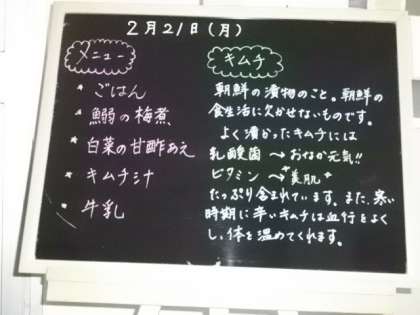 2月21日(月)
メニュー
* ごはん
* 鰯の梅煮
* 白菜の甘酢あえ
* キムチ汁
* 牛乳
キムチ
朝鮮の漬物のこと。朝鮮の
食生活に欠かせないものです。
よく漬かったキムチには
乳酸菌 → おなか元気!!
ビタミン → 美肌
たっぷり含まれています。また、寒い
時期に辛いキムチは血行をよく
し、体を温めてくれます。